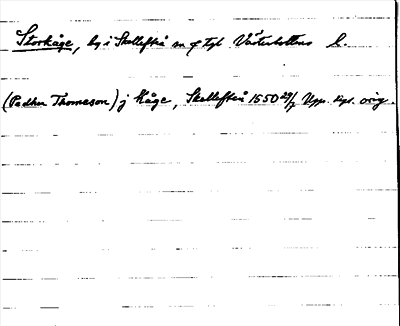 Storkåge, by i Skellefteå sn o tgl Västerbottens l.
(Pedher Thomeson) j Kåge, Skellefteå 1550 29/7 Upps. dipl. orig.